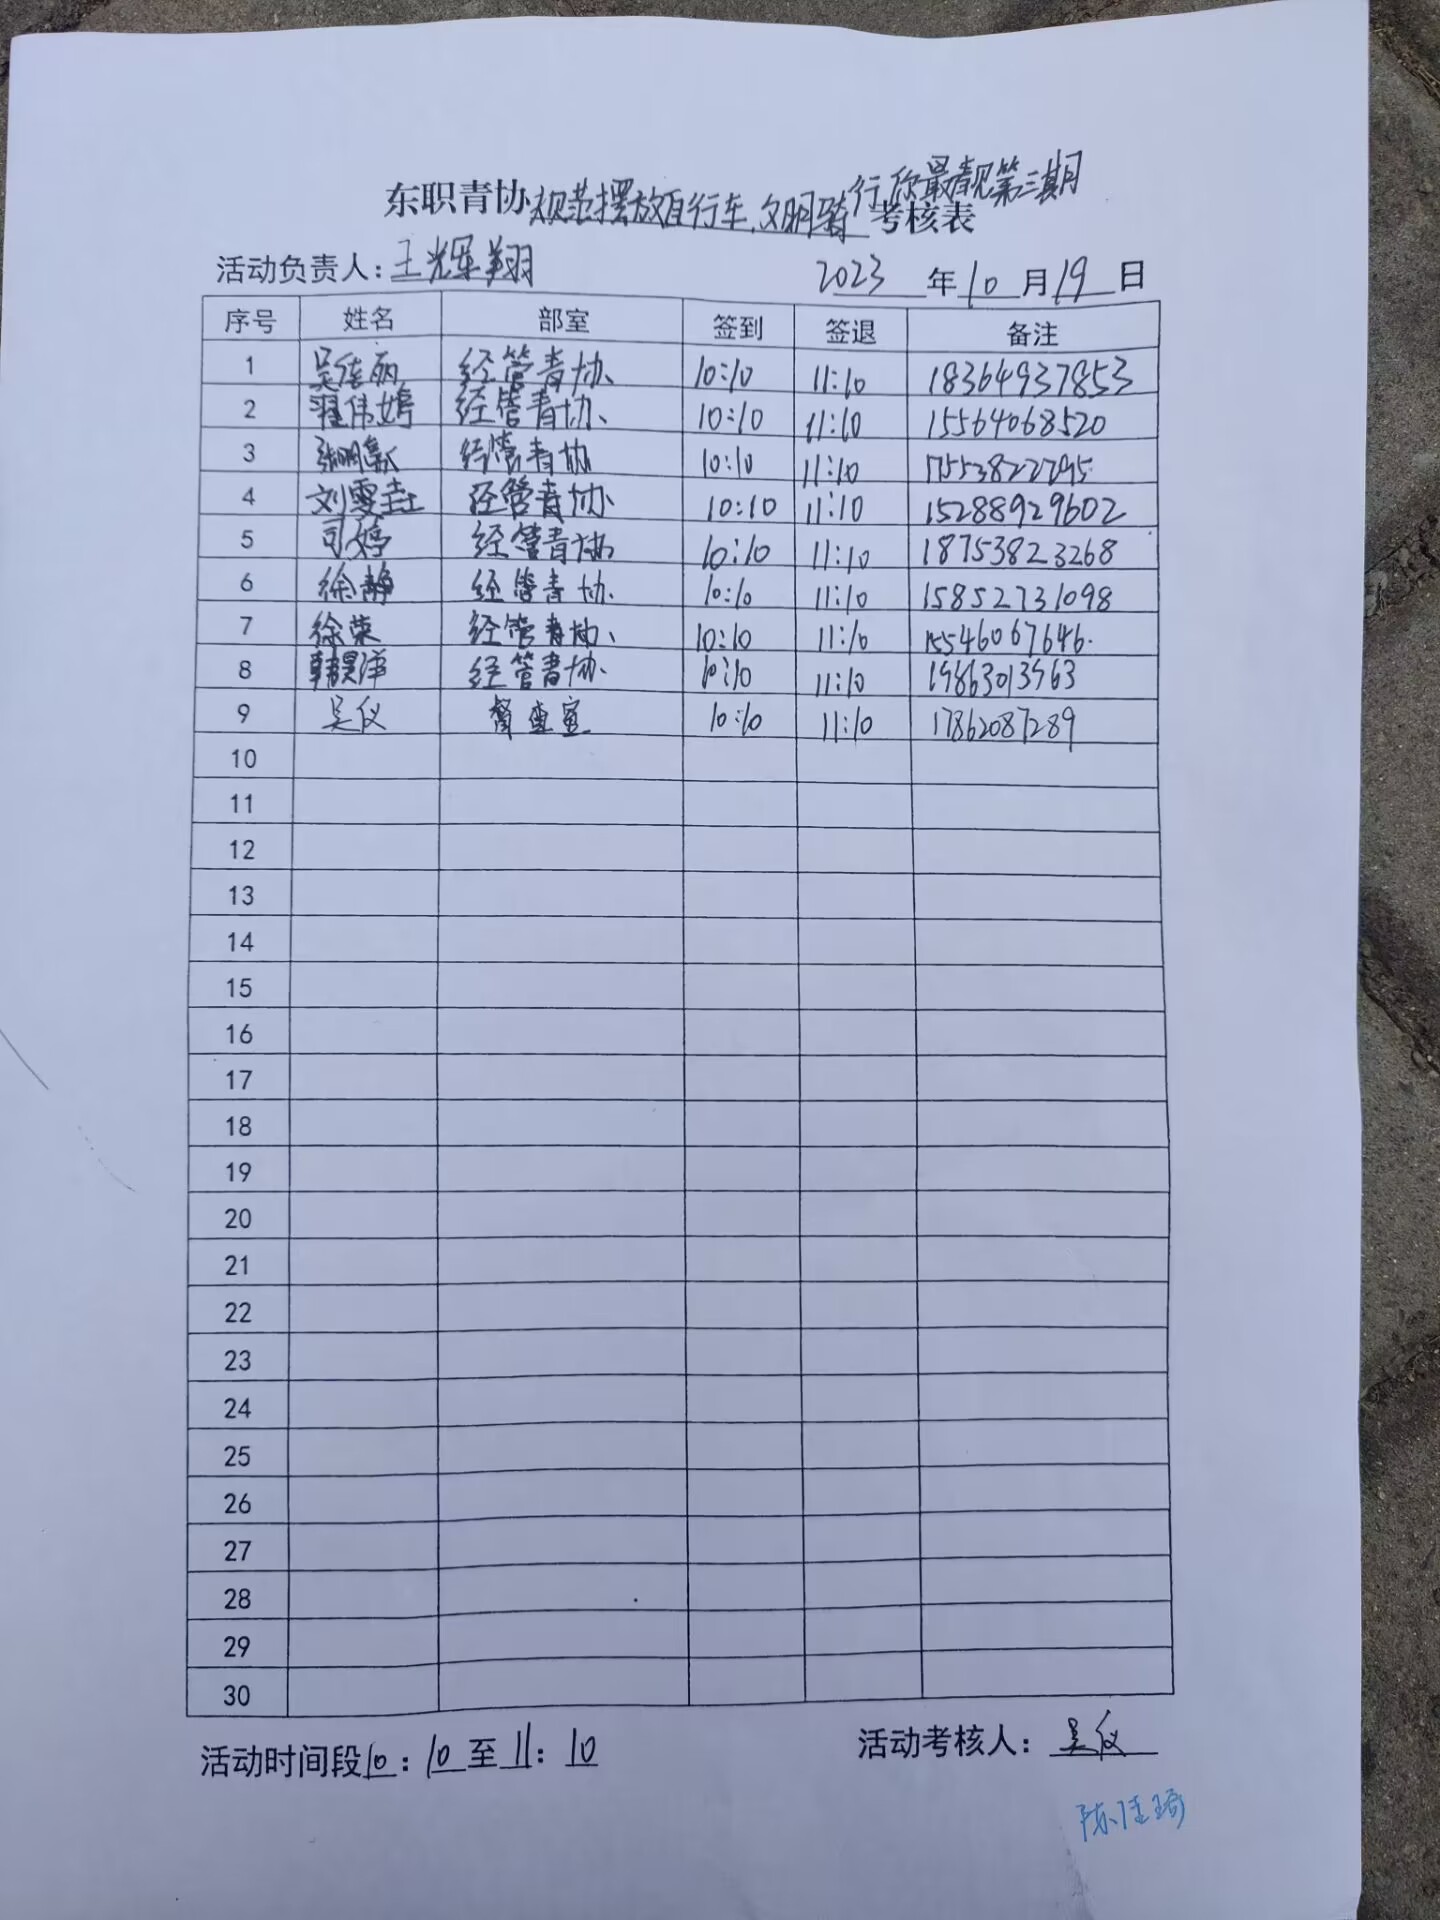 东职青协规范摆放自行车,文明骑行,你最靓第三期考核表
活动负责人:王辉翔 2023年10月19日
序号 姓名 部室 签到 签退 备注
1 吴佳丽 经管青协 10:10 11:10 18364937853
2 翟伟婷 经管青协 10:10 11:10 15564068520
3 经管青协 10:10 11:10 17553822795
4 刘雯 经管青协 10:10 11:10 15288929602
5 司婷 经管青协 10:10 11:10 18753823268
6 徐静 经管青协 10:10 11:10 15852731098
7 徐荣 经管青协 10:10 11:10 15546067646
8 韩昊洋 经管青协 10:10 11:10 19863013963
9 吴仪 督查室 10:10 11:10 17862087289
10
11
12
13
14
15
16
17
18
19
20
21
22
23
24
25
26
27
28
29
30
活动时间段10:10至11:10 活动考核人:吴仪
陈佳琦